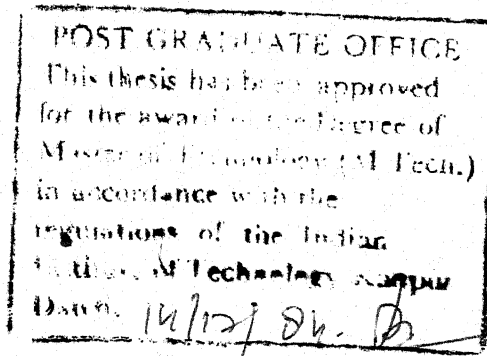 POST GRADUATE OFFICE
This thesis has been approved
for the award of the Degree of
Master of Technology (M Tech.)
in accordance with the
regulations of the Indian
Institute of Technology Kanpur
Dated. 14/12/84.